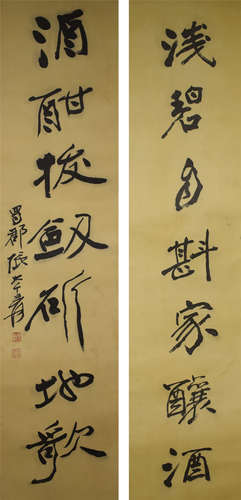 淺碧自斟家釀酒
酒酣拔劔斫地歌
蜀郡張大千爰